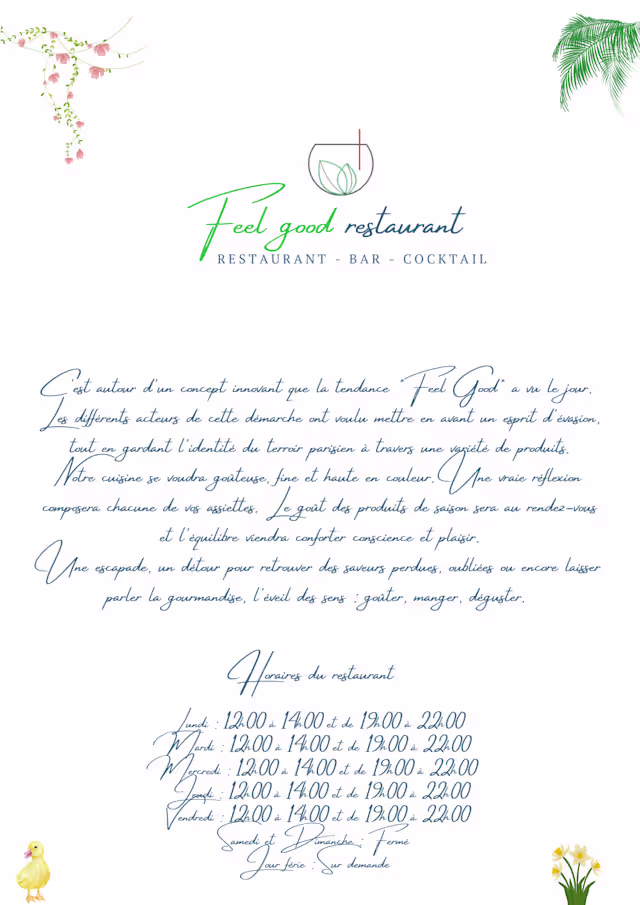 Feel good restaurant
RESTAURANT - BAR - COCKTAIL
C'est autour d'un concept innovant que la tendance "Feel Good" a vu le jour.
Les différents acteurs de cette démarche ont voulu mettre en avant un esprit d'évasion,
tout en gardant l'identité du terroir parisien à travers une variété de produits.
Notre cuisine se voudra goûteuse, fine et haute en couleur. Une vraie réflexion
composera chacune de vos assiettes. Le goût des produits de saison sera au rendez-vous
et l'équilibre viendra conforter conscience et plaisir.
Une escapade, un détour pour retrouver des saveurs perdues, oubliées ou encore laisser
parler la gourmandise, l'éveil des sens : goûter, manger, déguster.
Horaires du restaurant
Lundi : 12h00 à 14h00 et de 19h00 à 22h00
Mardi : 12h00 à 14h00 et de 19h00 à 22h00
Mercredi : 12h00 à 14h00 et de 19h00 à 22h00
Jeudi : 12h00 à 14h00 et de 19h00 à 22h00
Vendredi : 12h00 à 14h00 et de 19h00 à 22h00
Samedi et Dimanche : Fermé
Jour férie : Sur demande